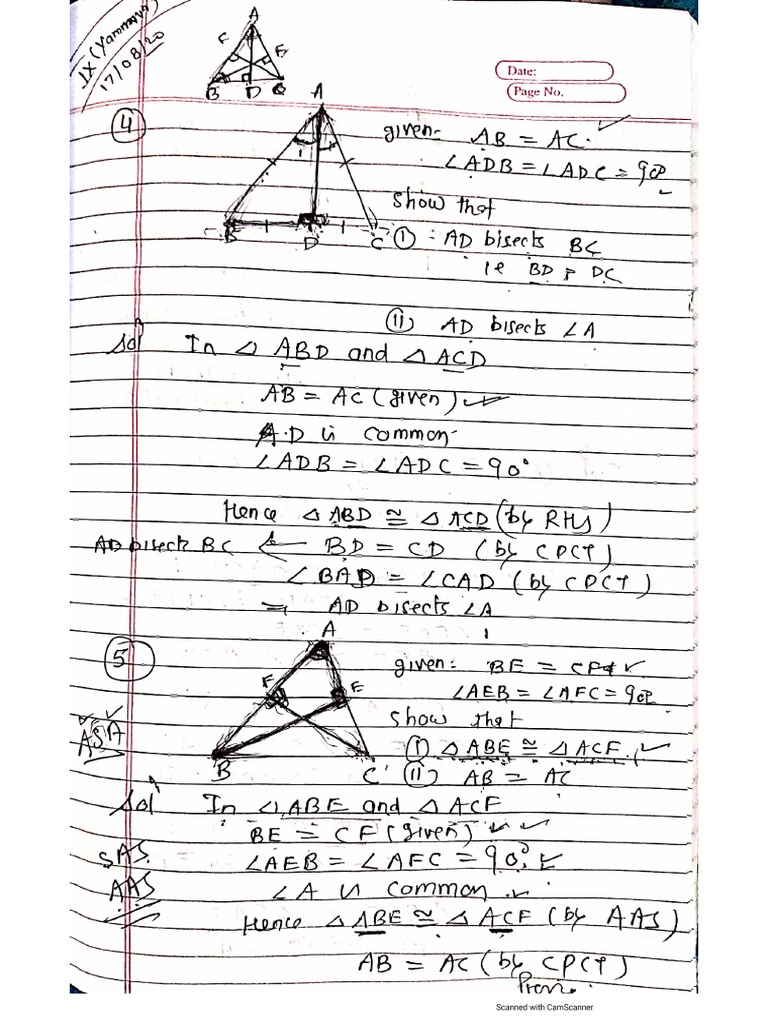 IX (Yamman)
17/08/20
A
F E
B D C
Date:
Page No.
4
A
1
B D C
given:- AB = AC.
∠ADB = ∠ADC = 90°
show that
(I) :- AD bisects BC
ie BD = DC
(II) AD bisects ∠A
Sol
In △ ABD and △ ACD
AB = AC (given)
A.D is common
∠ADB = ∠ADC = 90°
Hence △ ABD ≅ △ ACD (by RHS)
AD bisects BC ⇐ BD = CD (by CPCT)
∠BAD = ∠CAD (by CPCT)
⇒ AD bisects ∠A
5
A
F E
B C
given:- BE = CF
∠AEB = ∠AFC = 90°
show that
(I) △ ABE ≅ △ ACF
(II) AB = AC
ASA
Sol
In △ ABE and △ ACF
BE = CF (given)
SAS
∠AEB = ∠AFC = 90°
AAS
∠A is common
Hence △ ABE ≅ △ ACF (by AAS)
AB = AC (by CPCT)
Scanned with CamScanner